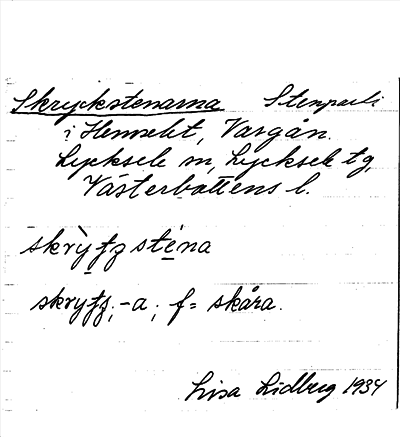 Skryckstenarna Stenparti
i Hemselet, Vargån.
Lycksele sn, Lycksele tg,
Västerbottens l.
skrỳtzsténa
skrytz, -a; f = skåra.
Lisa Lidberg 1934